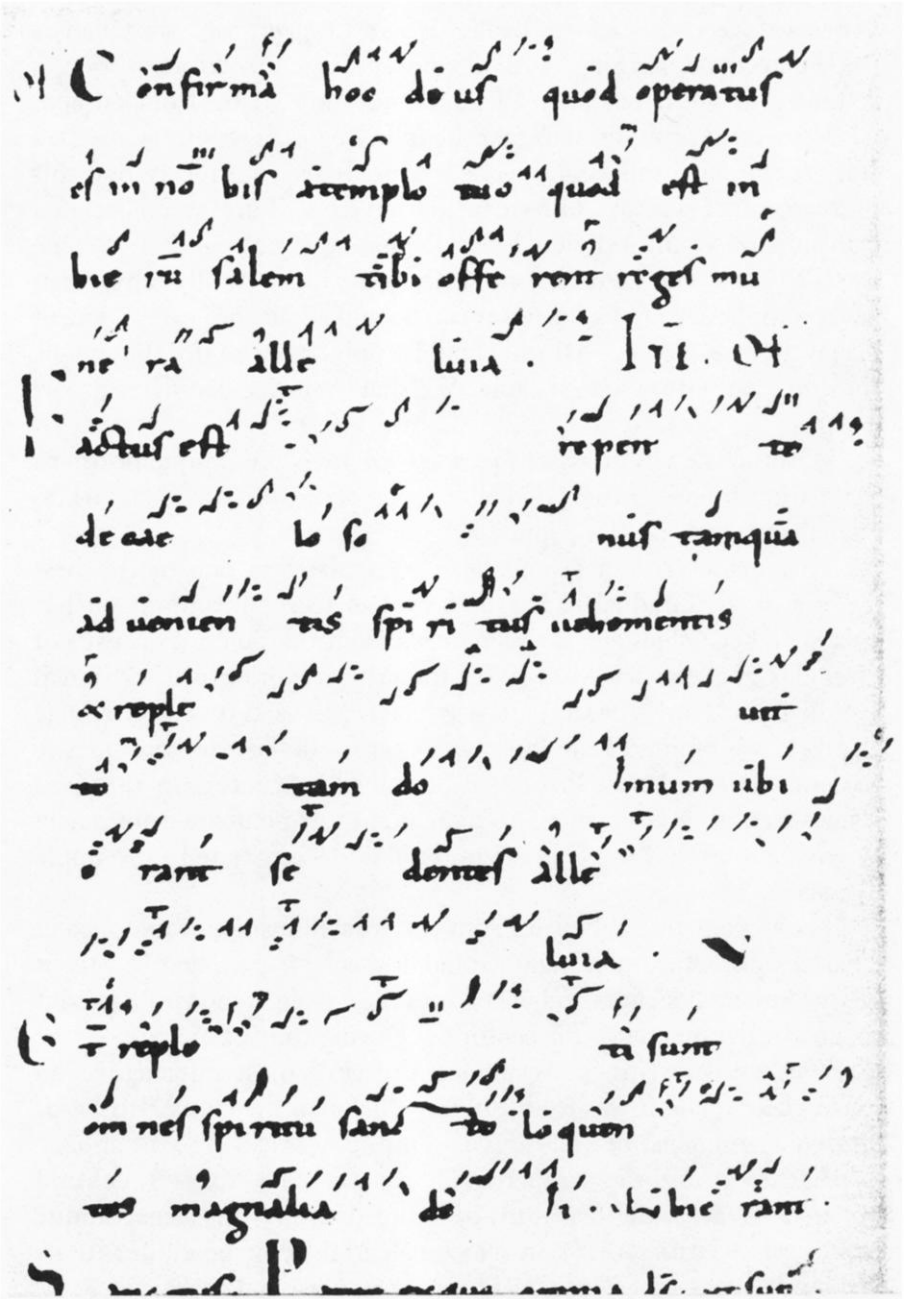 Confirma hoc deus quod operatus
es in no bis a templo tuo quod est in
hie rusalem tibi offe rent reges mu
ne ra alle luia.
Factus est repen te
de cae lo so nus tamquā
ad uenien tis spi ri tus uehementis
& reple uit
to tam do mum ubi
e rant se dentes alle
luia.
Et reple ti sunt
om nes spiritu sanc to loquen
tes magnalia de i. Ubi e rant.